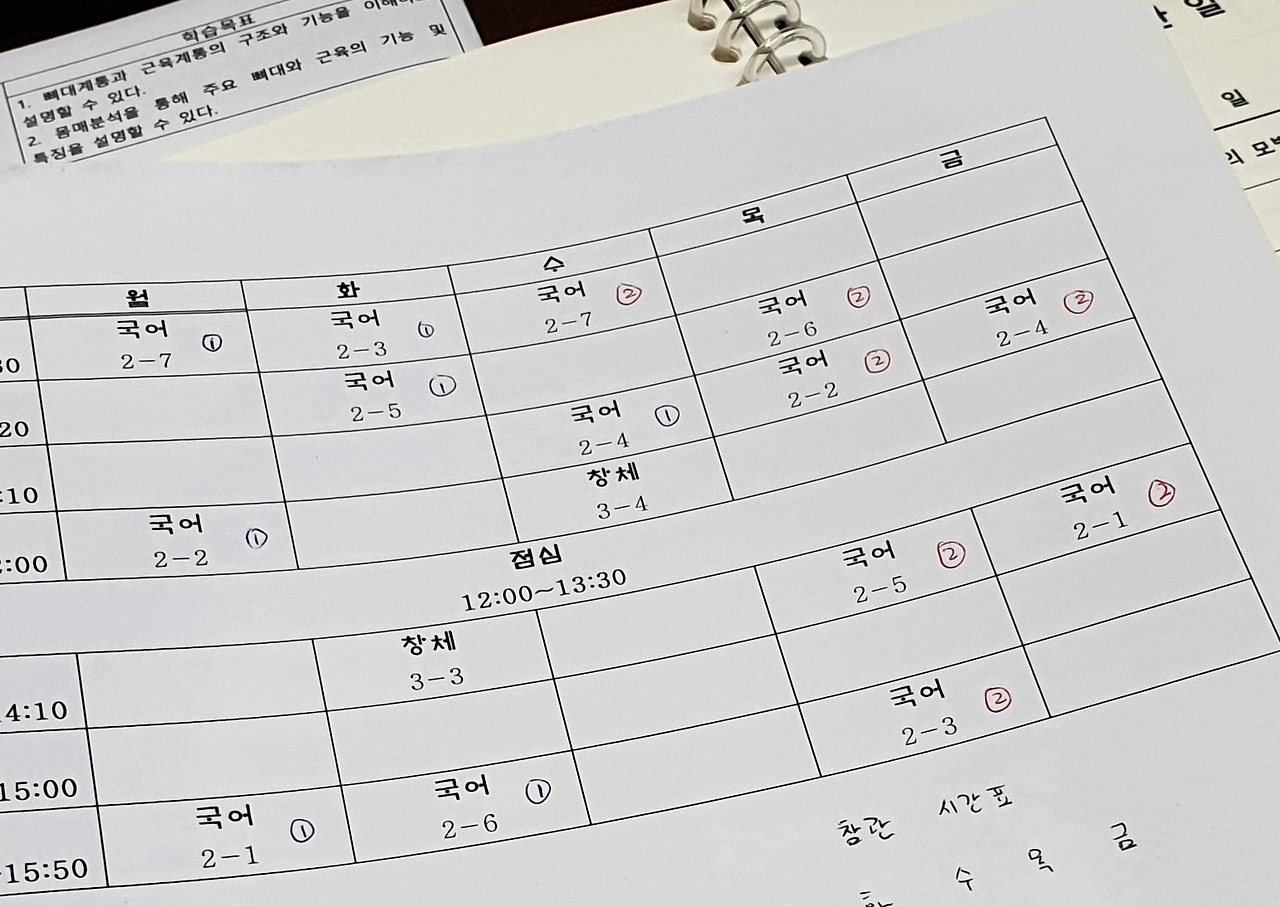 학습목표
1. 뼈대계통과 근육계통의 구조와 기능을
설명할 수 있다.
2. 몸매분석을 통해 주요 뼈대와 근육의 기능 및
특징을 설명할 수 있다.
일
의
월 화 수 목 금
국어 ① 국어 ① 국어 ②
30 2-7 2-3 2-7
국어 ① 국어 ②
20 2-5 2-6
국어 ① 국어 ② 국어 ②
:10 2-4 2-2 2-4
국어 ① 창체
:00 2-2 3-4
점심
12:00~13:30
창체 국어 ② 국어 ②
4:10 3-3 2-5 2-1
15:00
국어 ① 국어 ① 국어 ②
15:50 2-1 2-6 2-3
창관 시간표
화 수 목 금